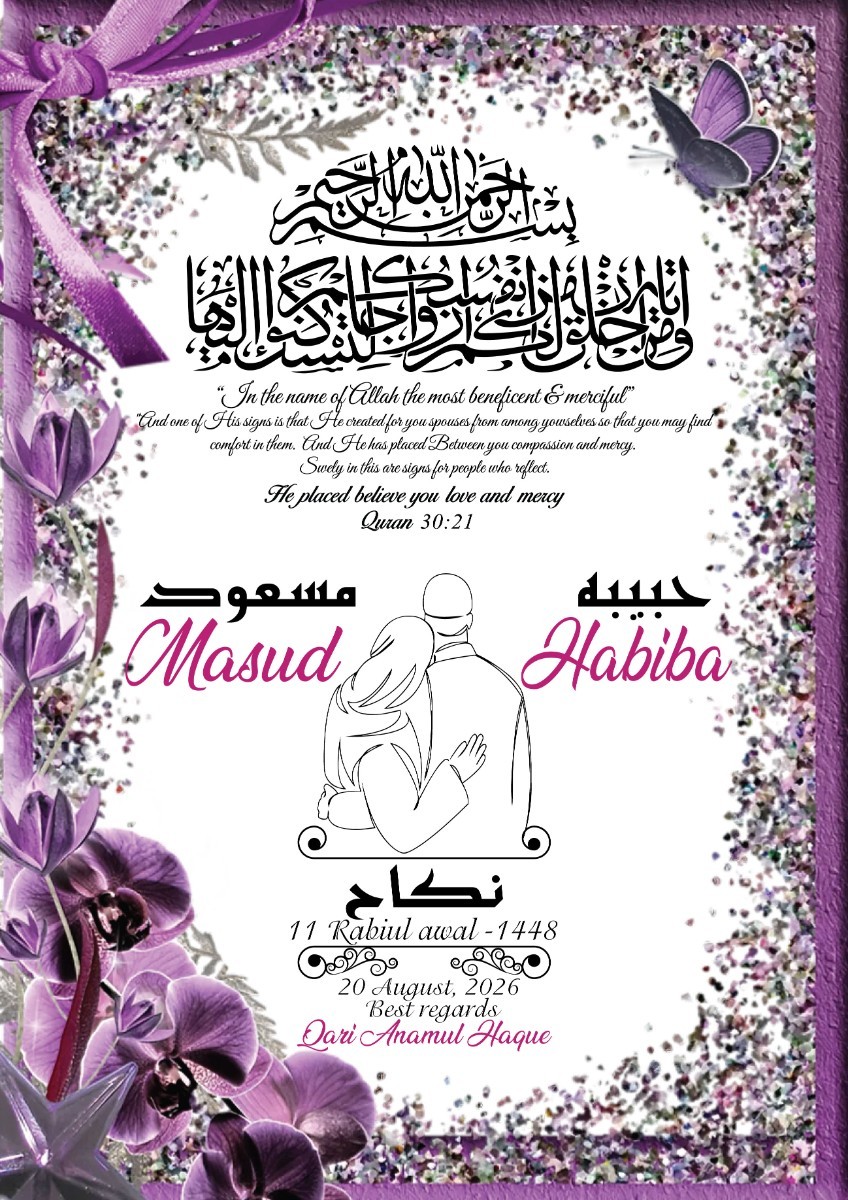 بسم الله الرحمن الرحيم
ومن آياته أن خلق لكم من أنفسكم أزواجا لتسكنوا إليها
“In the name of Allah the most beneficent & merciful”
"And one of His signs is that He created for you spouses from among yourselves so that you may find
comfort in them. And He has placed Between you compassion and mercy.
Surely in this are signs for people who reflect.
He placed believe you love and mercy
Quran 30:21
مسعود
حبيبه
Masud
Habiba
نكاح
11 Rabiul awal -1448
20 August, 2026
Best regards
Qari Anamul Haque